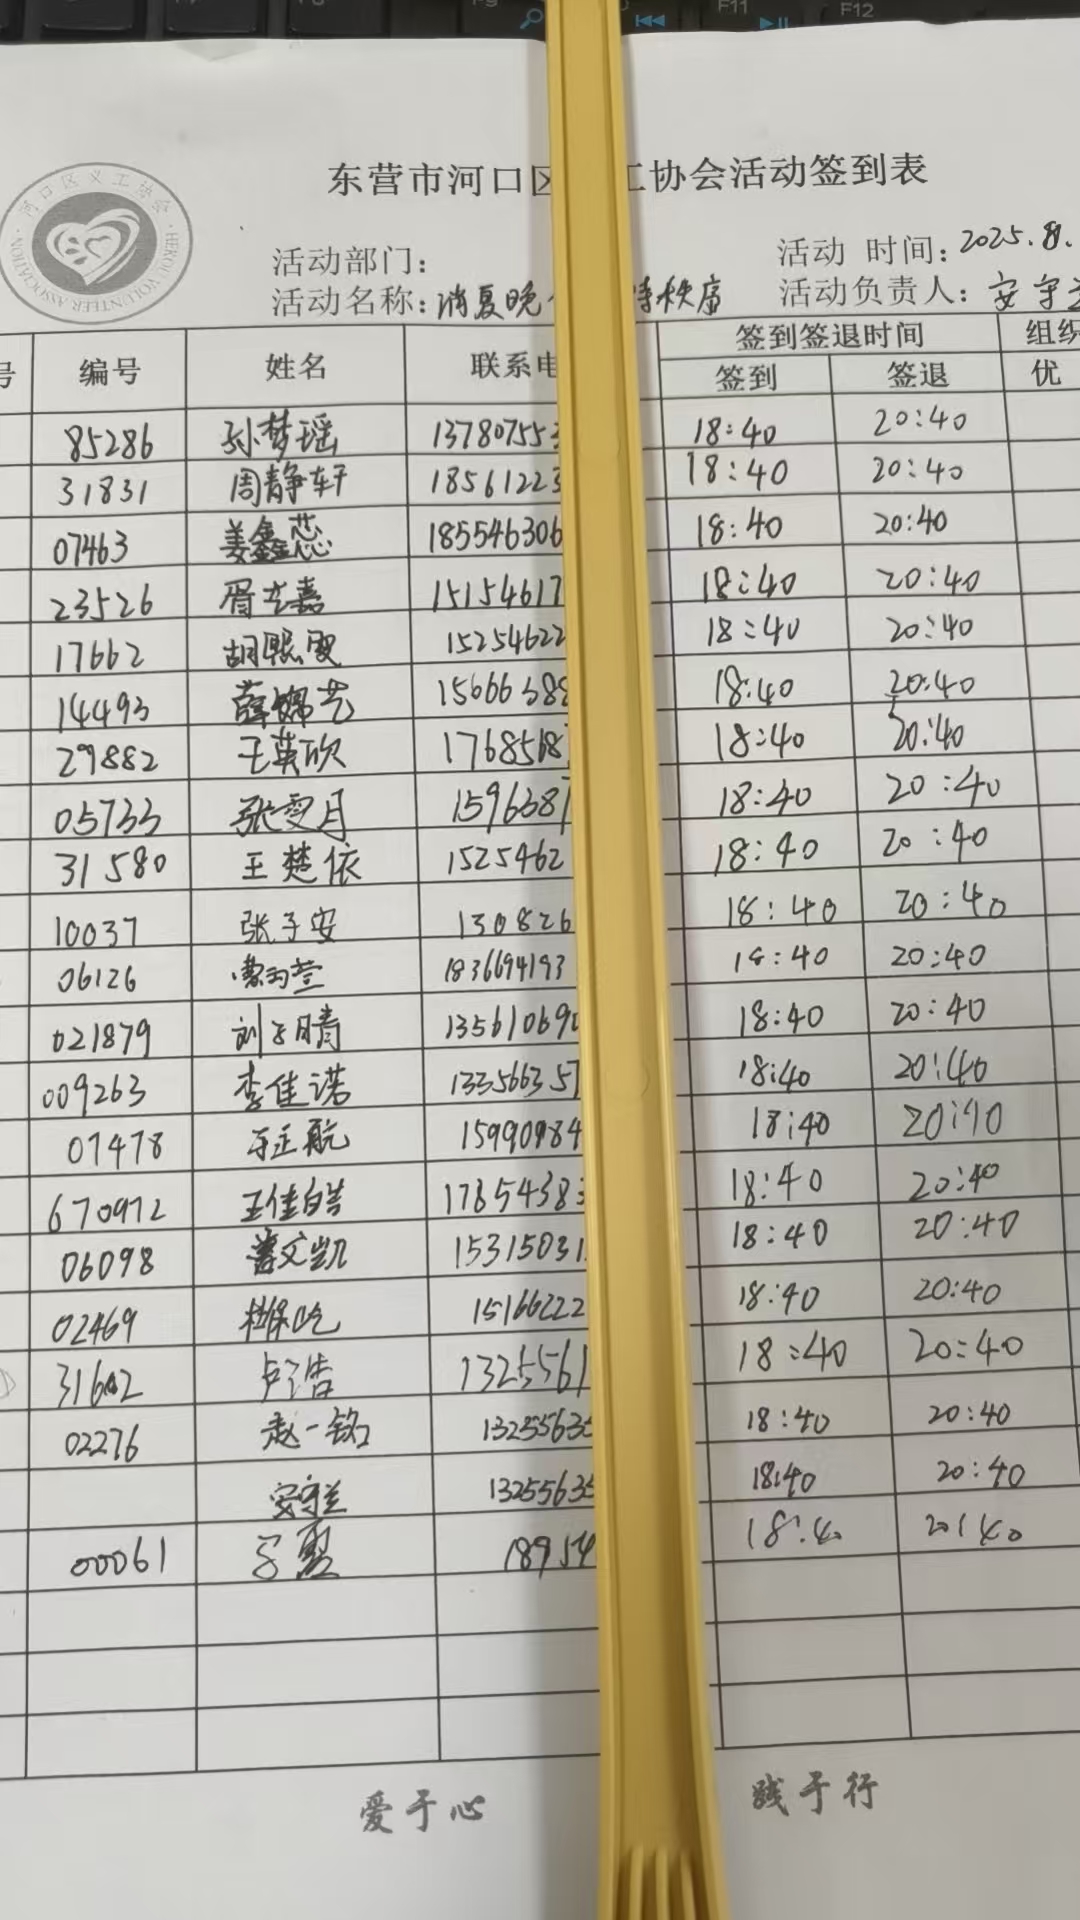 F11
F12
东营市河口区 工协会活动签到表
河口区义工协会
HEKOU VOLUNTEER ASSOCIATION
活动部门：
活动 时间：2025.8.
活动名称：消夏晚 持秩序
活动负责人：安守兰
号 编号 姓名 联系电 签到签退时间 组织
签到 签退 优
85286 孙梦瑶 137807553 18:40 20:40
31831 周静轩 18561223 18:40 20:40
07463 姜鑫蕊 185546306 18:40 20:40
23526 胥艺嘉 15154617 18:40 20:40
17662 胡熙雯 15254622 18:40 20:40
14493 薛锦艺 15666388 18:40 20:40
29882 王英欣 1768518 18:40 20:40
05733 张雯月 1596387 18:40 20:40
31580 王楚依 1525462 18:40 20:40
10037 张子安 130826 18:40 20:40
06126 1836694193 18:40 20:40
021879 刘子晴 135610690 18:40 20:40
009263 李佳诺 133566357 18:40 20:40
07478 15990984 18:40 20:40
670972 王佳皓 17854383 18:40 20:40
06098 曹文凯 15315031 18:40 20:40
02469 15166222 18:40 20:40
31602 卢浩 1325561 18:40 20:40
02276 赵一铭 13255635 18:40 20:40
安守兰 13255635 18:40 20:40
00061 18954 18:40 20:40
爱于心 践于行